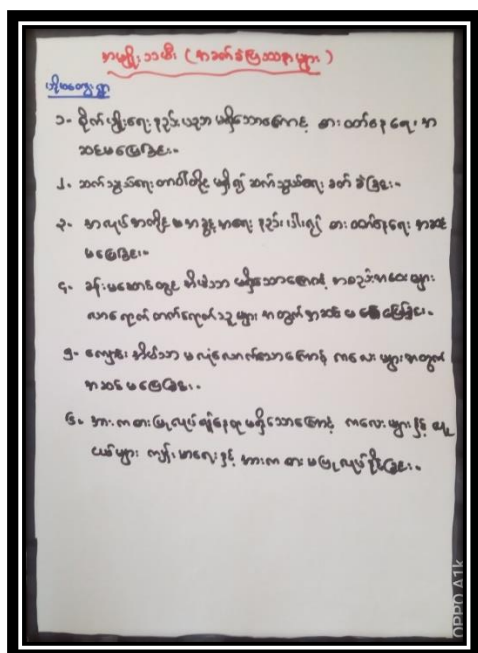 အမျိုးသမီး (အခက်ခဲပြဿနာများ)
၁- စိုက်ပျိုးရေး နည်းပညာ မရှိသောကြောင့် စား ဝတ်နေ ရေး အ
ဆင်မပြေခြင်း။
၂. ဆက်သွယ်ရေး တာဝါတိုင် မရှိ၍ ဆက်သွယ်ရေး ခက် ခဲခြင်း။
၃- အလုပ် အတိုင် အခွင့် အရေး နည်းပါး၍ စား ဝတ်နေရေး အဆင်
မပြေခြင်း။
၄- ခန်းမဆောင်တွင် အိမ်သာ မရှိသောကြောင့် အစည်းအဝေးများ
လာရောက် တက်ရောက်သူ များ အတွက် အဆင် မ ပြေခြင်း။
၅- ကျောင်း အိမ်သာ မလုံလောက်သောကြောင့် ကလေး များအတွက်
အဆင် မပြေခြင်း။
၆- အားကစားပြုလုပ်ရန်နေရာ မရှိသောကြောင့် ကလေး များနှင့် လူ
ငယ်များ ကျန်းမာရေးနှင့် အားက စား မပြုလုပ်နိုင်ခြင်း။
OPPO A1k